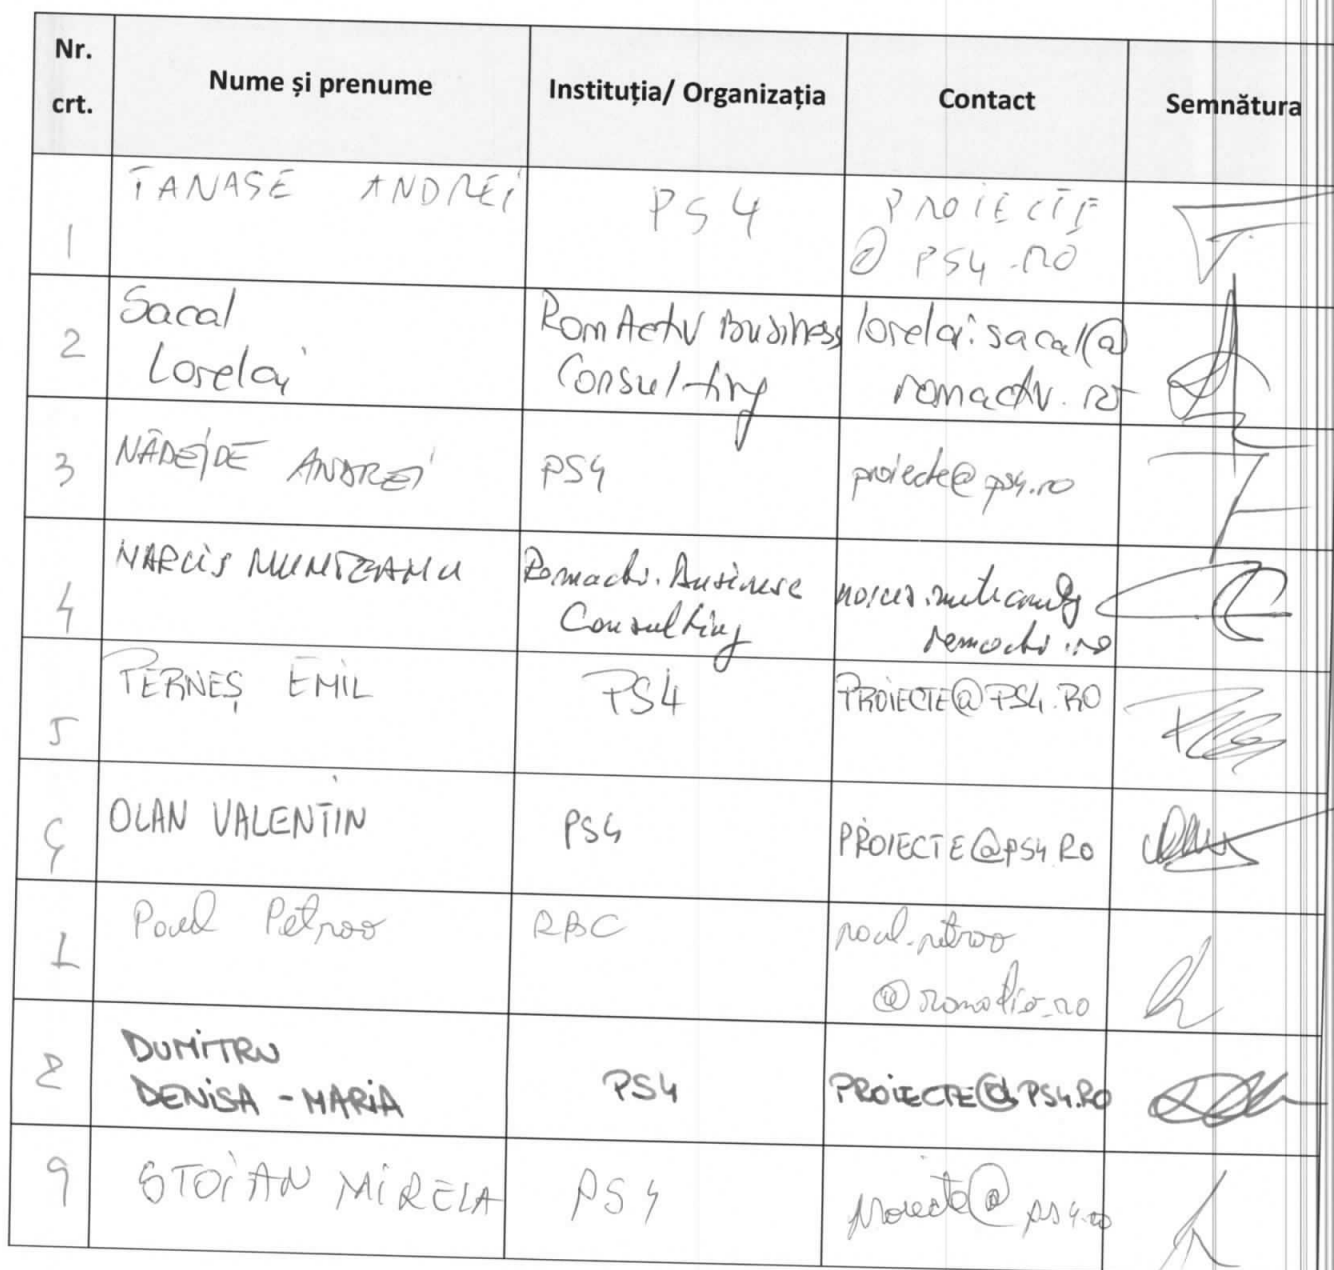 Nr. crt.
Nume și prenume
Instituția/ Organizația
Contact
Semnătura
1
TANASE ANDREI
PS4
PROIECTE
@ PS4.RO
2
Sacal
Lorelai
RomActiv Business
Consulting
lorelai.sacal@
romactiv.ro
3
NĂDEJDE ANDREI
PS4
proiecte@ps4.ro
4
NARCIS MUNTEANU
Romactiv Business
Consulting
5
TERNEȘ EMIL
PS4
PROIECTE@PS4.RO
6
OLAN VALENTIN
PS4
PROIECTE@PS4.RO
Paul
RBC
8
DUMITRU
DENISA-MARIA
PS4
PROIECTE@PS4.RO
9
STOIAN MIRELA
PS4
proiecte@ps4.ro